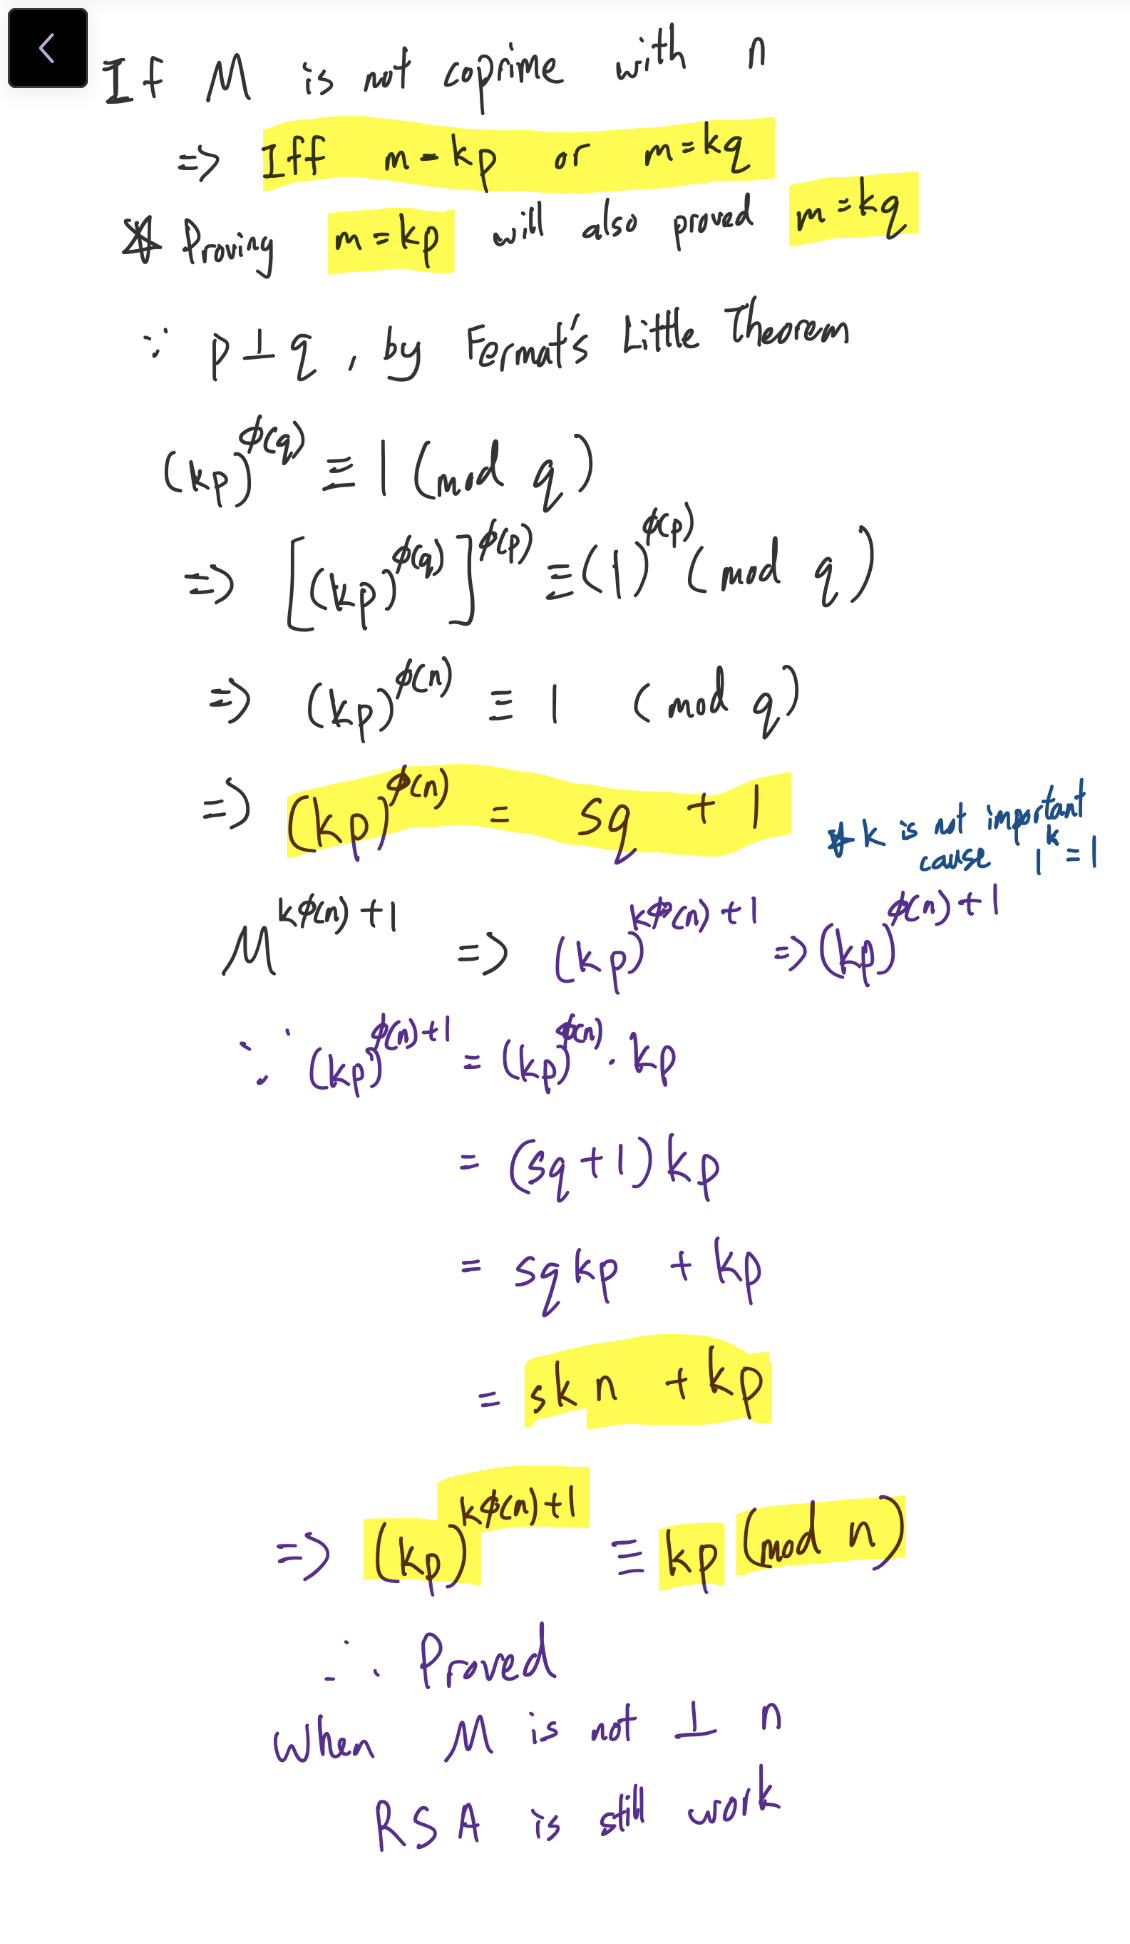 If M is not coprime with n
=> Iff m = kp or m = kq
* Proving m = kp will also proved m = kq
∵ p ⊥ q , by Fermat's Little Theorem
(kp)^ϕ(q) ≡ 1 (mod q)
=> [(kp)^ϕ(q)]^ϕ(p) ≡ (1)^ϕ(p) (mod q)
=> (kp)^ϕ(n) ≡ 1 (mod q)
=> (kp)^ϕ(n) = sq + 1
* k is not important
cause 1^k = 1
M^kϕ(n)+1 => (kp)^kϕ(n)+1 => (kp)^ϕ(n)+1
∵ (kp)^ϕ(n)+1 = (kp)^ϕ(n) · kp
= (sq + 1) kp
= sqkp + kp
= skn + kp
=> (kp)^kϕ(n)+1 ≡ kp (mod n)
∴ Proved
When M is not ⊥ n
RSA is still work